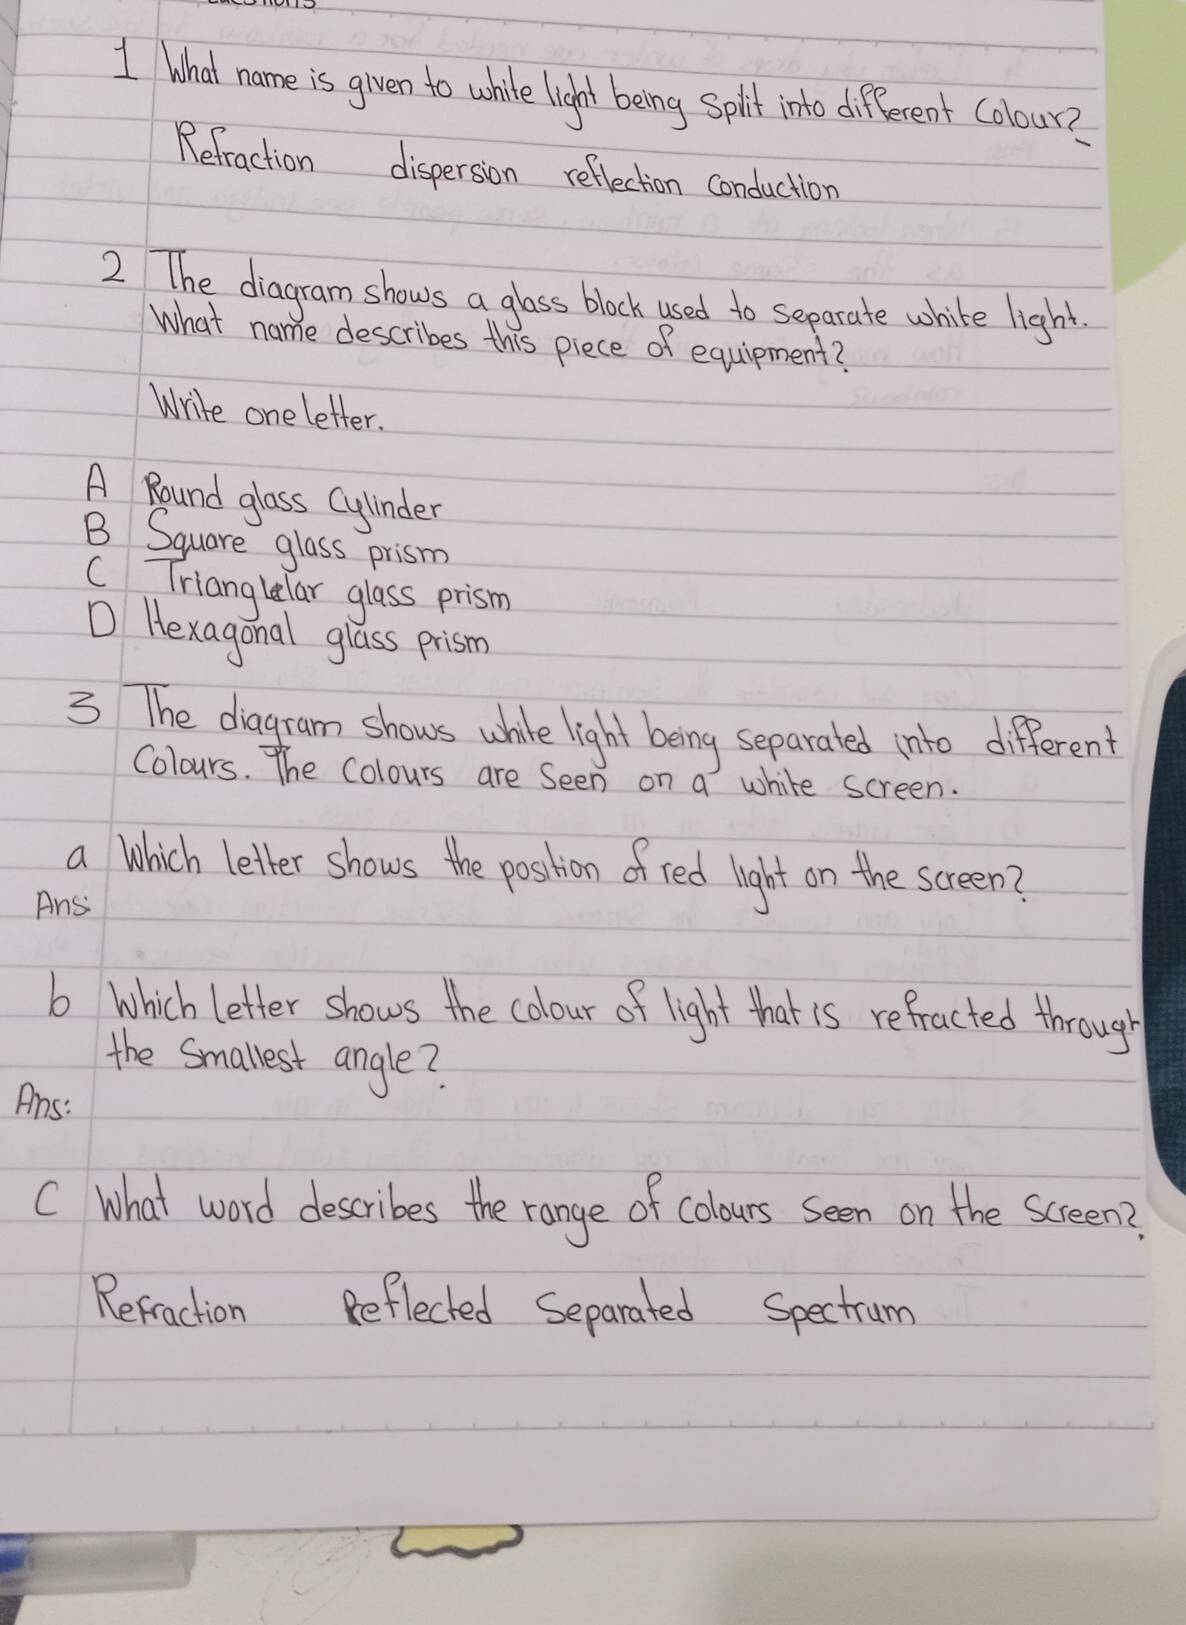 1 What name is given to white light being split into different colour?
Refraction dispersion reflection conduction
2 The diagram shows a glass block used to separate white light.
What name describes this piece of equipment?
Write one letter.
A Round glass cylinder
B Square glass prism
C Trianglelar glass prism
D Hexagonal glass prism
3 The diagram shows white light being separated into different
colours. The colours are seen on a white screen.
a Which letter shows the position of red light on the screen?
Ans:
b Which letter shows the colour of light that is refracted through
the smallest angle?
Ans:
C What word describes the range of colours seen on the screen?
Refraction Reflected Separated Spectrum